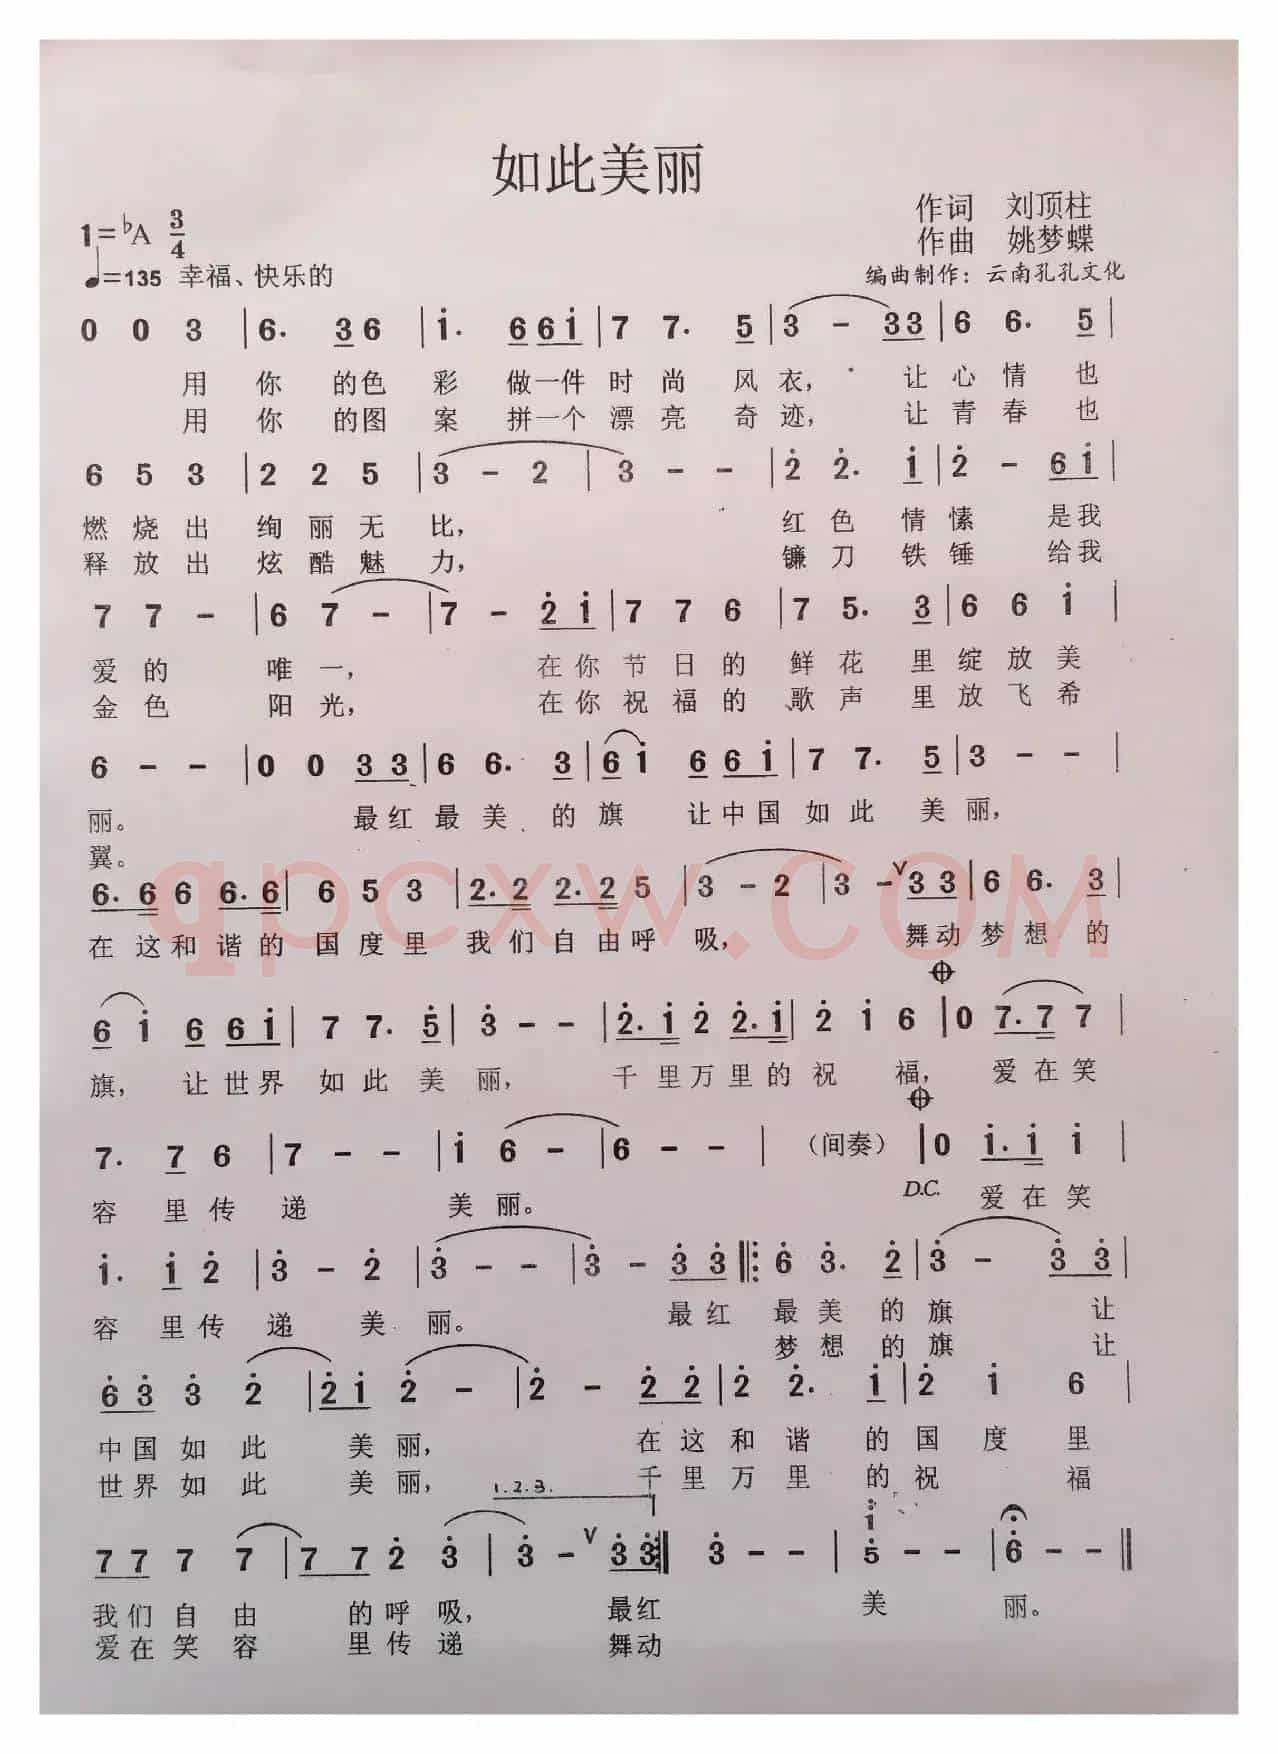 如此美丽
1=♭A 3/4
作词 刘顶柱
作曲 姚梦蝶
♩=135 幸福、快乐的
编曲制作：云南孔孔文化
0 0 3 | 6. 3 6 | i. 6 6 i | 7 7. 5 | 3 - 3 3 | 6 6. 5 |
用 你 的色 彩 做一件 时 尚 风 衣， 让 心 情 也
用 你 的图 案 拼一个 漂 亮 奇 迹， 让 青 春 也
6 5 3 | 2 2 5 | 3 - 2 | 3 - - | 2 2. i | 2 - 6 i |
燃 烧 出 绚 丽 无 比， 红 色 情 愫 是我
释 放 出 炫 酷 魅 力， 镰 刀 铁 锤 给我
7 7 - | 6 7 - | 7 - 2 i | 7 7 6 | 7 5. 3 | 6 6 i |
爱 的 唯 一， 在 你 节 日 的 鲜 花 里 绽 放 美
金 色 阳 光， 在 你 祝 福 的 歌 声 里 放 飞 希
6 - - | 0 0 3 3 | 6 6. 3 | 6 i 6 6 i | 7 7. 5 | 3 - - |
丽。 最红 最 美 的 旗 让 中 国 如 此 美 丽，
翼。
6. 6 6 6. 6 | 6 5 3 | 2. 2 2. 2 5 | 3 - 2 | 3 - ∨ 3 3 | 6 6. 3 |
在 这 和 谐 的 国 度 里 我 们 自 由 呼 吸， 舞动 梦 想 的
6 i 6 6 i | 7 7. 5 | 3 - - | 2. i 2 2. i | 2 i 6 | 0 7. 7 7 |
旗， 让 世 界 如 此 美 丽， 千 里 万 里 的 祝 福， 爱 在 笑
7. 7 6 | 7 - - | i 6 - | 6 - - | （间奏） | 0 i. i i |
D.C.
容 里 传 递 美 丽。 爱 在 笑
i. i 2 | 3 - 2 | 3 - - | 3 - 3 3 ‖: 6 3. 2 | 3 - 3 3 |
容 里 传 递 美 丽。 最 红 最 美 的 旗 让
梦 想 的 旗 让
6 3 3 2 | 2 i 2 - | 2 - 2 2 | 2 2. i | 2 i 6 |
中 国 如 此 美 丽， 在 这 和 谐 的 国 度 里
世 界 如 此 美 丽， 千 里 万 里 的 祝 福
1.2.3.
7 7 7 7 | 7 7 2 3 | 3 - ∨ 3 3 :‖ 3 - - | i 5 - - | 6 - - ‖
我 们 自 由 的 呼 吸， 最红 美 丽。
爱 在 笑 容 里 传 递 舞动
qpcxw.COM